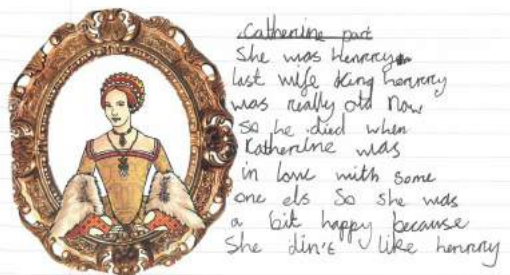 Catherine part
She was Henrrry
last wife King henrrry
was really old now
so he died when
Katherine was
in love with some
one els So she was
a bit happy because
She din't like henrrry